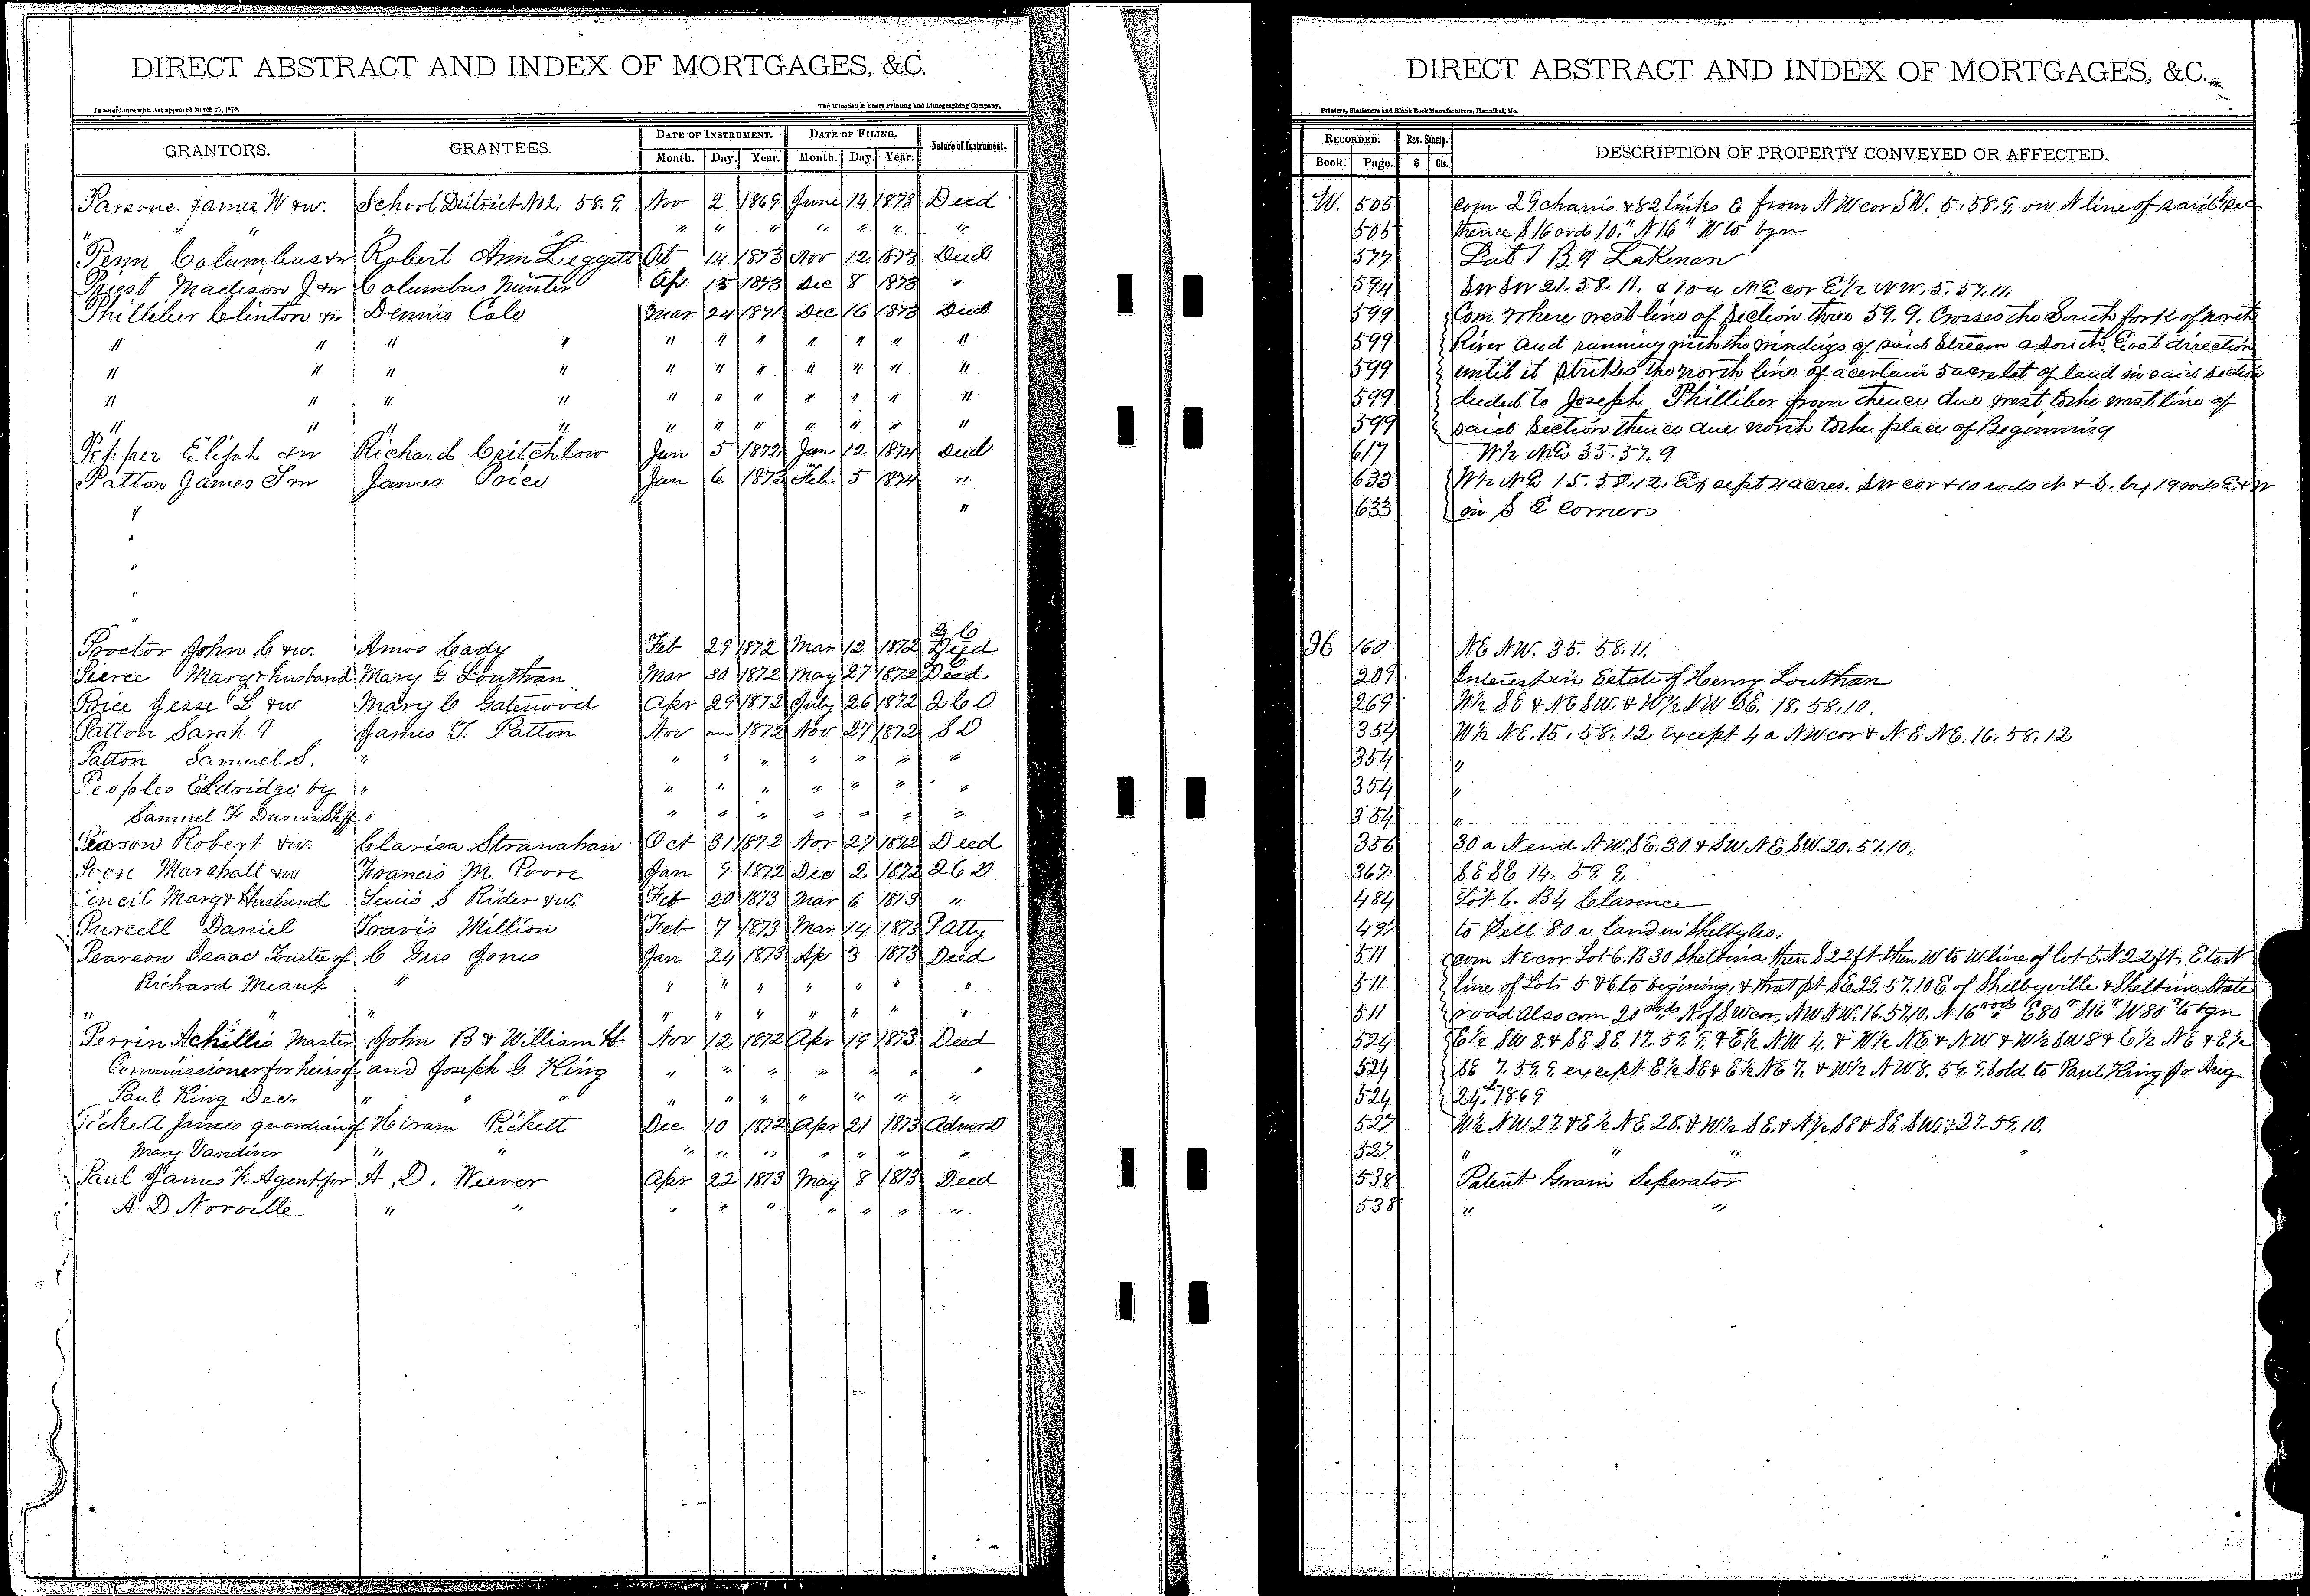 DIRECT ABSTRACT AND INDEX OF MORTGAGES, &C.
In accordance with Act approved March 25, 1870.
The Winchell & Ebert Printing and Lithographing Company,
GRANTORS. GRANTEES. DATE OF INSTRUMENT. DATE OF FILING. Nature of Instrument.
Month. Day. Year. Month. Day. Year.
Parsons. James W &w. School District No 2. 58. 9. Nov 2 1869 June 14 1873 Deed
" " " " " " " " " "
Penn Columbus &w Robert Ann Leggett Oct 14 1873 Nov 12 1873 Deed
Priest Madison J &w Columbus Minter Apr 15 1873 Dec 8 1873 "
Philliber Clinton &w Dennis Cale Mar 24 1871 Dec 16 1873 Deed
" " " " " " " " " " "
" " " " " " " " " " "
" " " " " " " " " " "
" " " " " " " " " " "
Pepper Elijah &w Richard Critchlow Jan 5 1872 Jan 12 1874 Deed
Patton James T &w James Price Jan 6 1873 Feb 5 1874 "
" "
"
"
"
"
Proctor John C &w. Amos Cady Feb 29 1872 Mar 12 1872 2 C Deed
Pierce Mary & husband Mary G Louthan Mar 30 1872 May 27 1872 2 C Deed
Price Jesse L &w Mary C Gatewood Apr 29 1872 July 26 1872 2 C D
Patton Sarah J James T. Patton Nov 1872 Nov 27 1872 S D
Patton Samuel S. " " " " " " " "
Peoples Eldridge by " " " " " " " "
Samuel F Dunn Shff " " " " " " " "
Pearson Robert &w. Clarisa Stranahan Oct 31 1872 Nov 27 1872 Deed
Poore Marshall &w Francis M Poore Jan 9 1872 Dec 2 1872 2 C D
Pencil Mary & Husband Lewis S Rider &w. Feb 20 1873 Mar 6 1873 "
Purcell Daniel Travis Million Feb 7 1873 Mar 14 1873 Patty
Pearson Isaac Trustee of C Gus Jones Jan 24 1873 Ap 3 1873 Deed
Richard Means " " " " " " " "
" " " " " " " " " "
Perrin Achillis Master John B & William H Nov 12 1872 Apr 19 1873 Deed
Commissioner for heirs of and Joseph G King " " " " " " "
Paul King Dec. " " " " " " " " " "
Pickett James guardian of Hiram Pickett Dec 10 1872 Apr 21 1873 Admr D
Mary Vandiver " " " " " " " " "
Paul James F. Agent for A. D. Weever Apr 22 1873 May 8 1873 Deed
A D Norville " " " " " " " " "
DIRECT ABSTRACT AND INDEX OF MORTGAGES, &C.
Printers, Stationers and Blank Book Manufacturers, Hannibal, Mo.
RECORDED. Rev. Stamp. DESCRIPTION OF PROPERTY CONVEYED OR AFFECTED.
Book. Page. $ Cts.
W. 505 com 29 chains & 82 links E from NW cor SW. 5. 58. 9. on N line of said ¼ sec
505 thence S 16 rods 10." N 16 " W to bgn
577 Lot 1 B 9 Lakenan
594 SW SW 21. 58. 11. & 10 a NE cor E½ NW. 5. 57. 11.
599 Com Where west line of Section three 59. 9. Crosses the South fork of north
599 River and running with the windings of said Stream a South East direction
599 until it strikes the north line of a certain 5 acre lot of land in said section
599 deeded to Joseph Philliber from thence due west to the west line of
599 said Section thence due north to the place of Beginning
617 W½ NE 35. 57. 9
633 W½ NE 15. 58. 12. Except 4 acres. SW cor & 10 rods N & S. by 19 rods E & W
633 in S E Corner
H 160 NE NW. 35. 58. 11.
209 Interest in Estate of Henry Louthan
269 W½ SE & NE SW. & W½ NW SE. 18. 58. 10.
354 W½ NE. 15. 58. 12 except 4 a NW cor & N E NE. 16. 58. 12
354 "
354 "
354 "
356 30 a N end NW. SE. 30 & SW NE SW. 20. 57. 10.
367 SE SE 14. 59. 9.
484 Lot 6. B 4 Clarence
497 to Sell 80 a land in Shelby Co.
511 com NE cor Lot 6. B 30 Shelbina then S 22 ft. then W to W line of lot 5. N 22 ft. E to N
511 line of Lots 5 & 6 to begining. & that pt SE. 29. 57. 10 E of Shelbyville & Shelbina State
511 road also com 20 rods N of SW cor. NW NW. 16. 57. 10. N 16 rods E 80 " S 16 " W 80 " to bgn
524 E½ SW 8. & SE SE 17. 59. 9. & E½ NW 4. & W½ NE & NW & W½ SW 8 & E½ NE & E½
524 SE 7. 59. 9. except E½ SE & E½ NE 7. & W½ NW 8. 59. 9. Sold to Paul King Jr Aug
524 24th 1869
527 W½ NW 27. & E½ NE 28. & W½ SE. & N½ SE & SE SW. 27. 59. 10.
527 " " " "
538 Patent Grain Seperator
538 " "